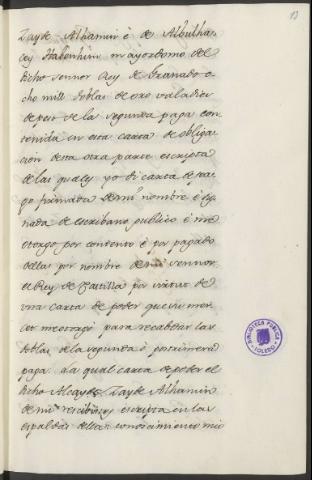 13
Zayde Alhamin è de Albulha-
cey Habenhim mayordomo del
dicho sennor Rey de Granada o-
cho mill doblas de oro valadies
de peso de la segunda paga con-
tenida en esta carta de obliga-
cion desta otra parte escripta
de las quales yo di carta de pa-
go firmada de mi nombre è syg-
nada de escribano publico è me
otorgo por contento è por pagado
dellas por nombre de mi sennor
el Rey de Castilla por virtut de
una carta de poder que su mer-
cet me otorgò para recabdar las
doblas de la segunda è postrimera
paga. La qual carta de poder el
dicho Alcayde Zayde Alhamin
de mi rescibió escripta en las
espaldas della conoscimiento mio
BIBLIOTECA PUBLICA
TOLEDO